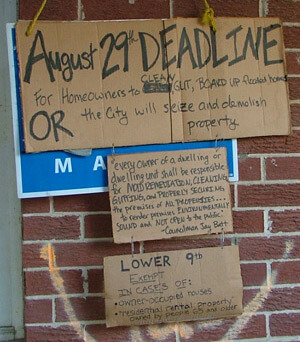 August 29th DEADLINE
For Homeowners to CLEAN, GUT, BOARD UP flooded homes
OR the City will seize and demolish
property.
MA
"every owner of a dwelling or
dwelling unit shall be responsible
for MOLD REMEDIATION, CLEANING,
GUTTING, and PROPERLY SECURING
the premises of ALL PROPERTIES...
to render premises ENVIRONMENTALLY
SOUND and NOT OPEN to the public"
-Councilman Jay Batt
LOWER 9th
EXEMPT
IN CASES OF:
•owner-occupied houses
•"residential rental property"
owned by people 65 and older